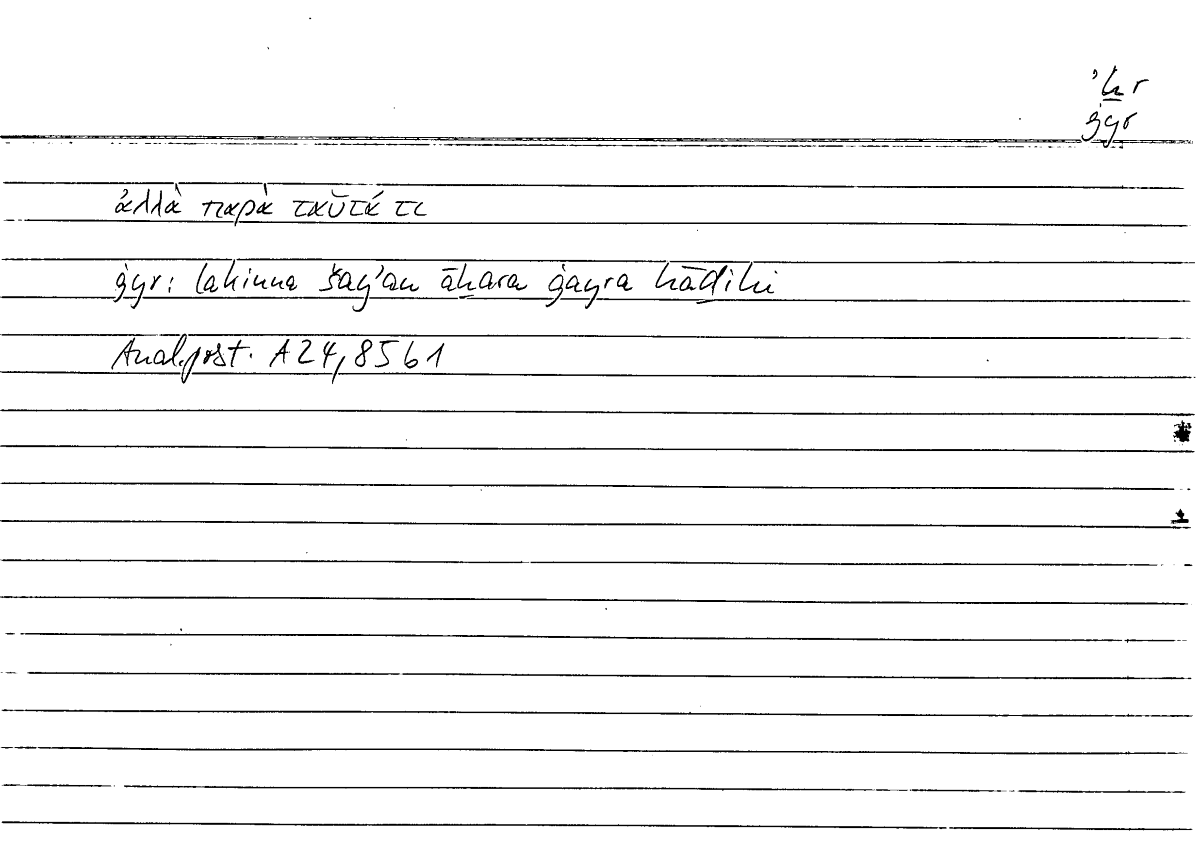 ʾḫr
ġyr
ἀλλὰ παρὰ ταῦτά τι
ġyr: lakinna šayʾan āḫara ġayra hāḏihi
Anal. post. A24, 85b1